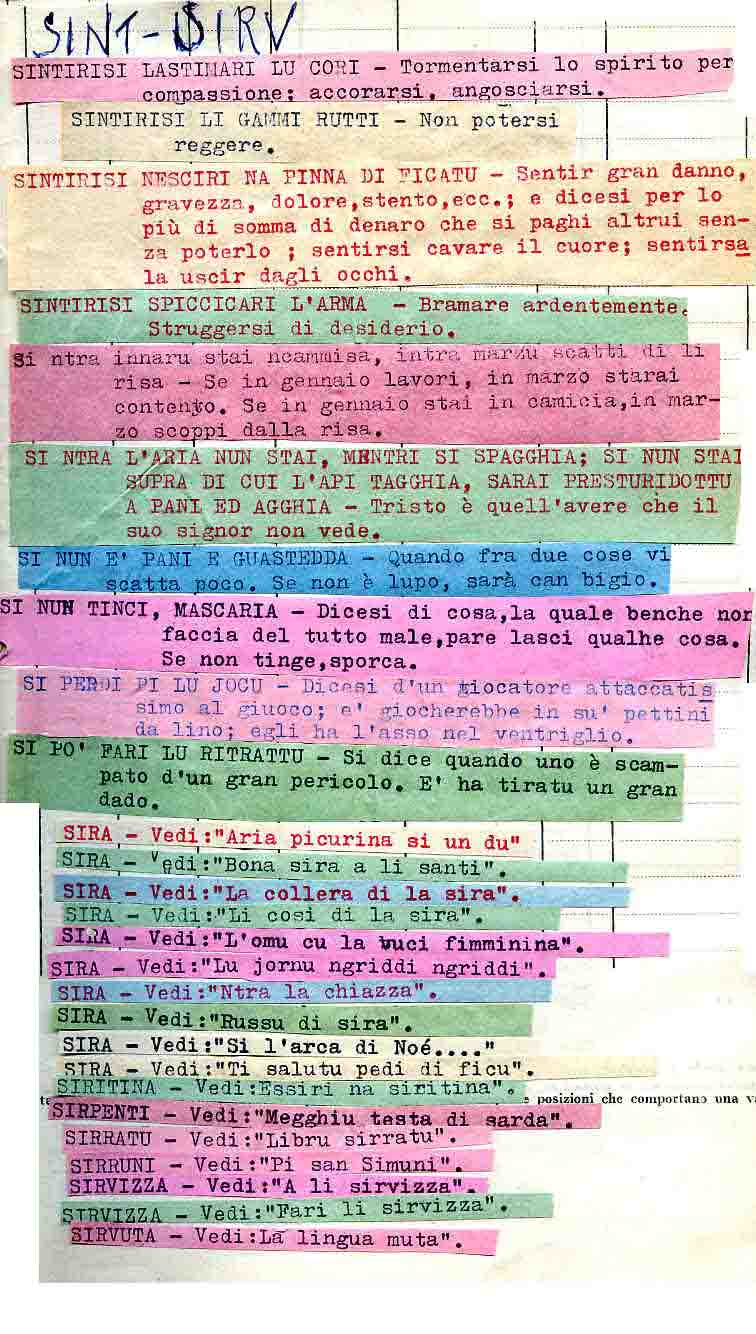 SINT-SIRV
SINTIRISI LASTIMARI LU CORI - Tormentarsi lo spirito per
compassione; accorarsi, angosciarsi.
SINTIRISI LI GAMMI RUTTI - Non potersi
reggere.
SINTIRISI NESCIRI NA PINNA DI FICATU - Sentir gran danno,
gravezza, dolore,stento,ecc.; e dicesi per lo
più di somma di denaro che si paghi altrui sen-
za poterlo ; sentirsi cavare il cuore; sentirsa
la uscir dagli occhi.
SINTIRISI SPICCICARI L'ARMA - Bramare ardentemente.
Struggersi di desiderio.
Si ntra innaru stai ncammisa, intra marzu scatti di li
risa - Se in gennaio lavori, in marzo starai
contento. Se in gennaio stai in camicia,in mar-
zo scoppi dalla risa.
SI NTRA L'ARIA NUN STAI, MENTRI SI SPAGGHIA; SI NUN STAI
SUPRA DI CUI L'API TAGGHIA, SARAI PRESTURIDOTTU
A PANI ED AGGHIA - Tristo è quell'avere che il
suo signor non vede.
SI NUN E' PANI E GUASTEDDA - Quando fra due cose vi
scatta poco. Se non è lupo, sarà can bigio.
SI NUN TINCI, MASCARIA - Dicesi di cosa,la quale benche non
faccia del tutto male,pare lasci qualhe cosa.
Se non tinge,sporca.
SI PERDI PI LU JOCU - Dicesi d'un giocatore attaccatis
simo al giuoco; e' giocherebbe in su' pettini
da lino; egli ha l'asso nel ventriglio.
SI PO' FARI LU RITRATTU - Si dice quando uno è scam-
pato d'un gran pericolo. E' ha tiratu un gran
dado.
SIRA - Vedi:"Aria picurina si un du"
SIRA - Vedi:"Bona sira a li santi".
SIRA - Vedi:"La collera di la sira".
SIRA - Vedi:"Li cosi di la sira".
SIRA - Vedi:"L'omu cu la vuci fimminina".
SIRA - Vedi:"Lu jornu ngriddi ngriddi".
SIRA - Vedi:"Ntra la chiazza".
SIRA - Vedi:"Russu di sira".
SIRA - Vedi:"Si l'arca di Noé...."
SIRA - Vedi:"Ti salutu pedi di ficu".
SIRITINA - Vedi:Essiri na siritina".
posizioni che comportano una
SIRPENTI - Vedi:"Megghiu testa di sarda".
SIRRATU - Vedi:"Libru sirratu".
SIRRUNI - Vedi:"Pi san Simuni".
SIRVIZZA - Vedi:"A li sirvizza".
SIRVIZZA - Vedi:"Fari li sirvizza".
SIRVUTA - Vedi:La lingua muta".